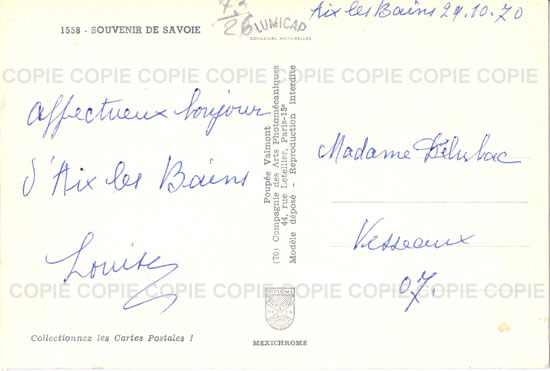 1558 - SOUVENIR DE SAVOIE
73
26
LUMICAP
COULEURS NATURELLES
Aix les Bains 29.10.70
COPIE COPIE COPIE COPIE COPIE COPIE COPIE COPIE
affectueux bonjour
d'Aix les Bains
Louise
Poupée Valmont
(70) Compagnie des Arts Photomécaniques
44, rue Letellier, Paris-15e
Modèle déposé - Reproduction interdite
Madame
Vesseaux
07.
COPIE COPIE COPIE COPIE COPIE COPIE COPIE COPIE
Collectionnez les Cartes Postales !
MEXICHROME